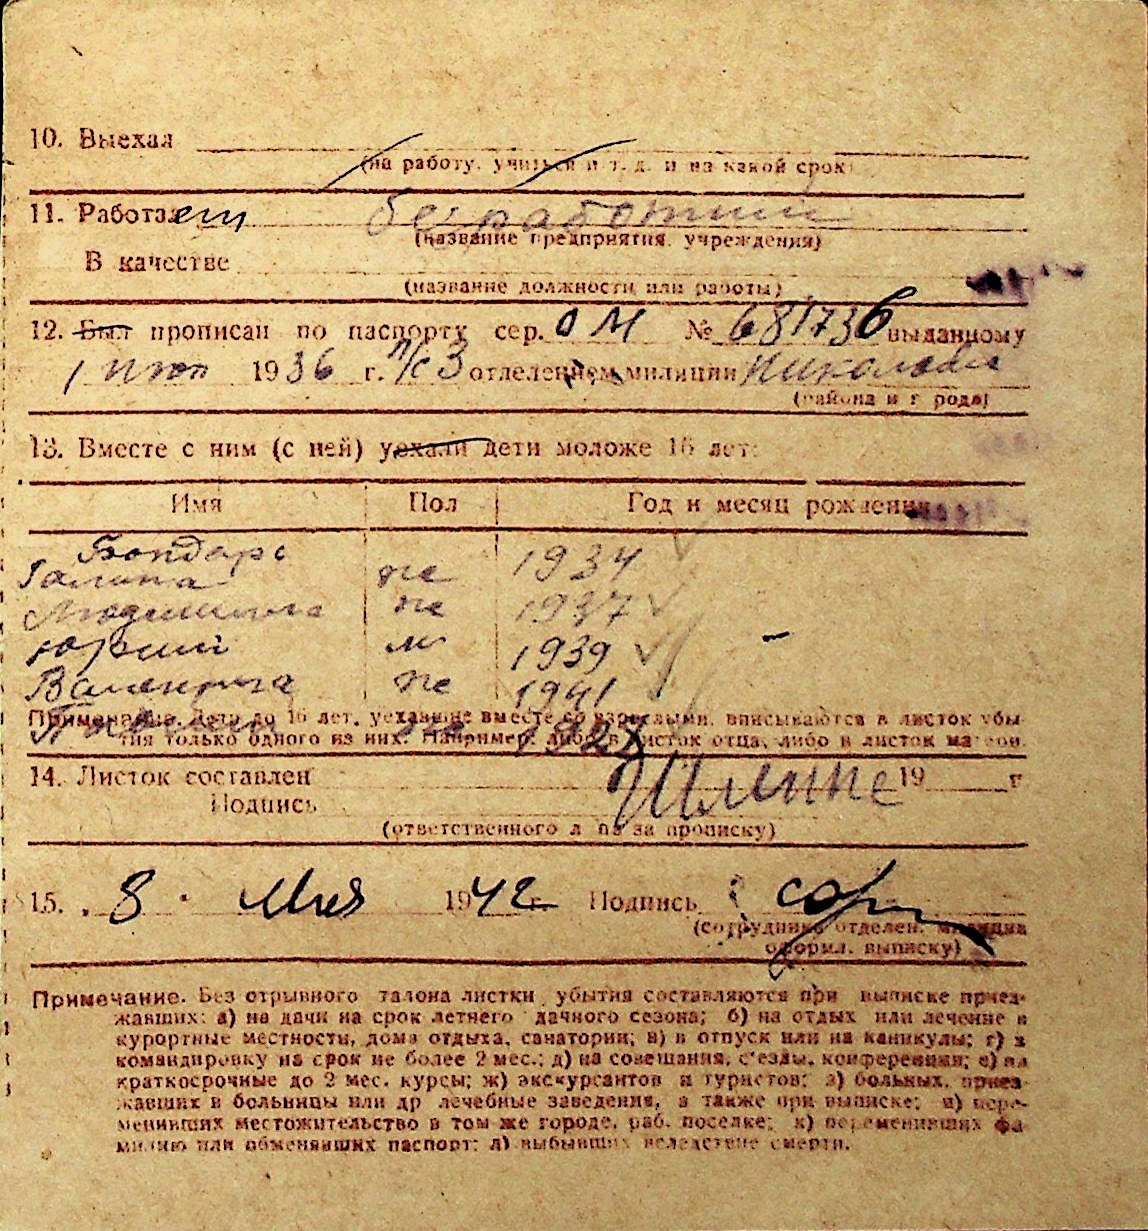 10. Выехал
(на работу, учиться и т. д. и на какой срок)
11. Работает безработний
(название предприятия, учреждения)
В качестве
(название должности или работы)
12. Был прописан по паспорту сер. ОМ № 681736 выданному
1 июл 1936 г. п/с 3 отделением милиции Николаев
(района и города)
13. Вместе с ним (с ней) уехали дети моложе 16 лет:
Имя Пол Год и месяц рождения
Бондарь
Галина же 1934
Людмила же 1937
Юрий м 1939
Валентина же 1941
Примечание. Дети до 16 лет, уехавшие вместе со взрослыми, вписываются в листок убы-
тия только одного из них. Например, либо в листок отца, либо в листок матери.
14. Листок составлен 19 г
Подпись
(ответственного лица за прописку)
15. 8. Мая 1942 г. Подпись
(сотрудника отделен. милиции
оформл. выписку)
Примечание. Без отрывного талона листки убытия составляются при выписке приез-
жавших: а) на дачи на срок летнего дачного сезона; б) на отдых или лечение в
курортные местности, дома отдыха, санатории; в) в отпуск или на каникулы; г) в
командировку на срок не более 2 мес.; д) на совещания, с'езды, конференции; е) на
краткосрочные до 2 мес. курсы; ж) экскурсантов и туристов; з) больных, приез-
жавших в больницы или др лечебные заведения, а также при выписке; и) пере-
менивших местожительство в том же городе, раб. поселке; к) переменивших фа-
милию или обменявших паспорт; л) выбывших вследствие смерти.